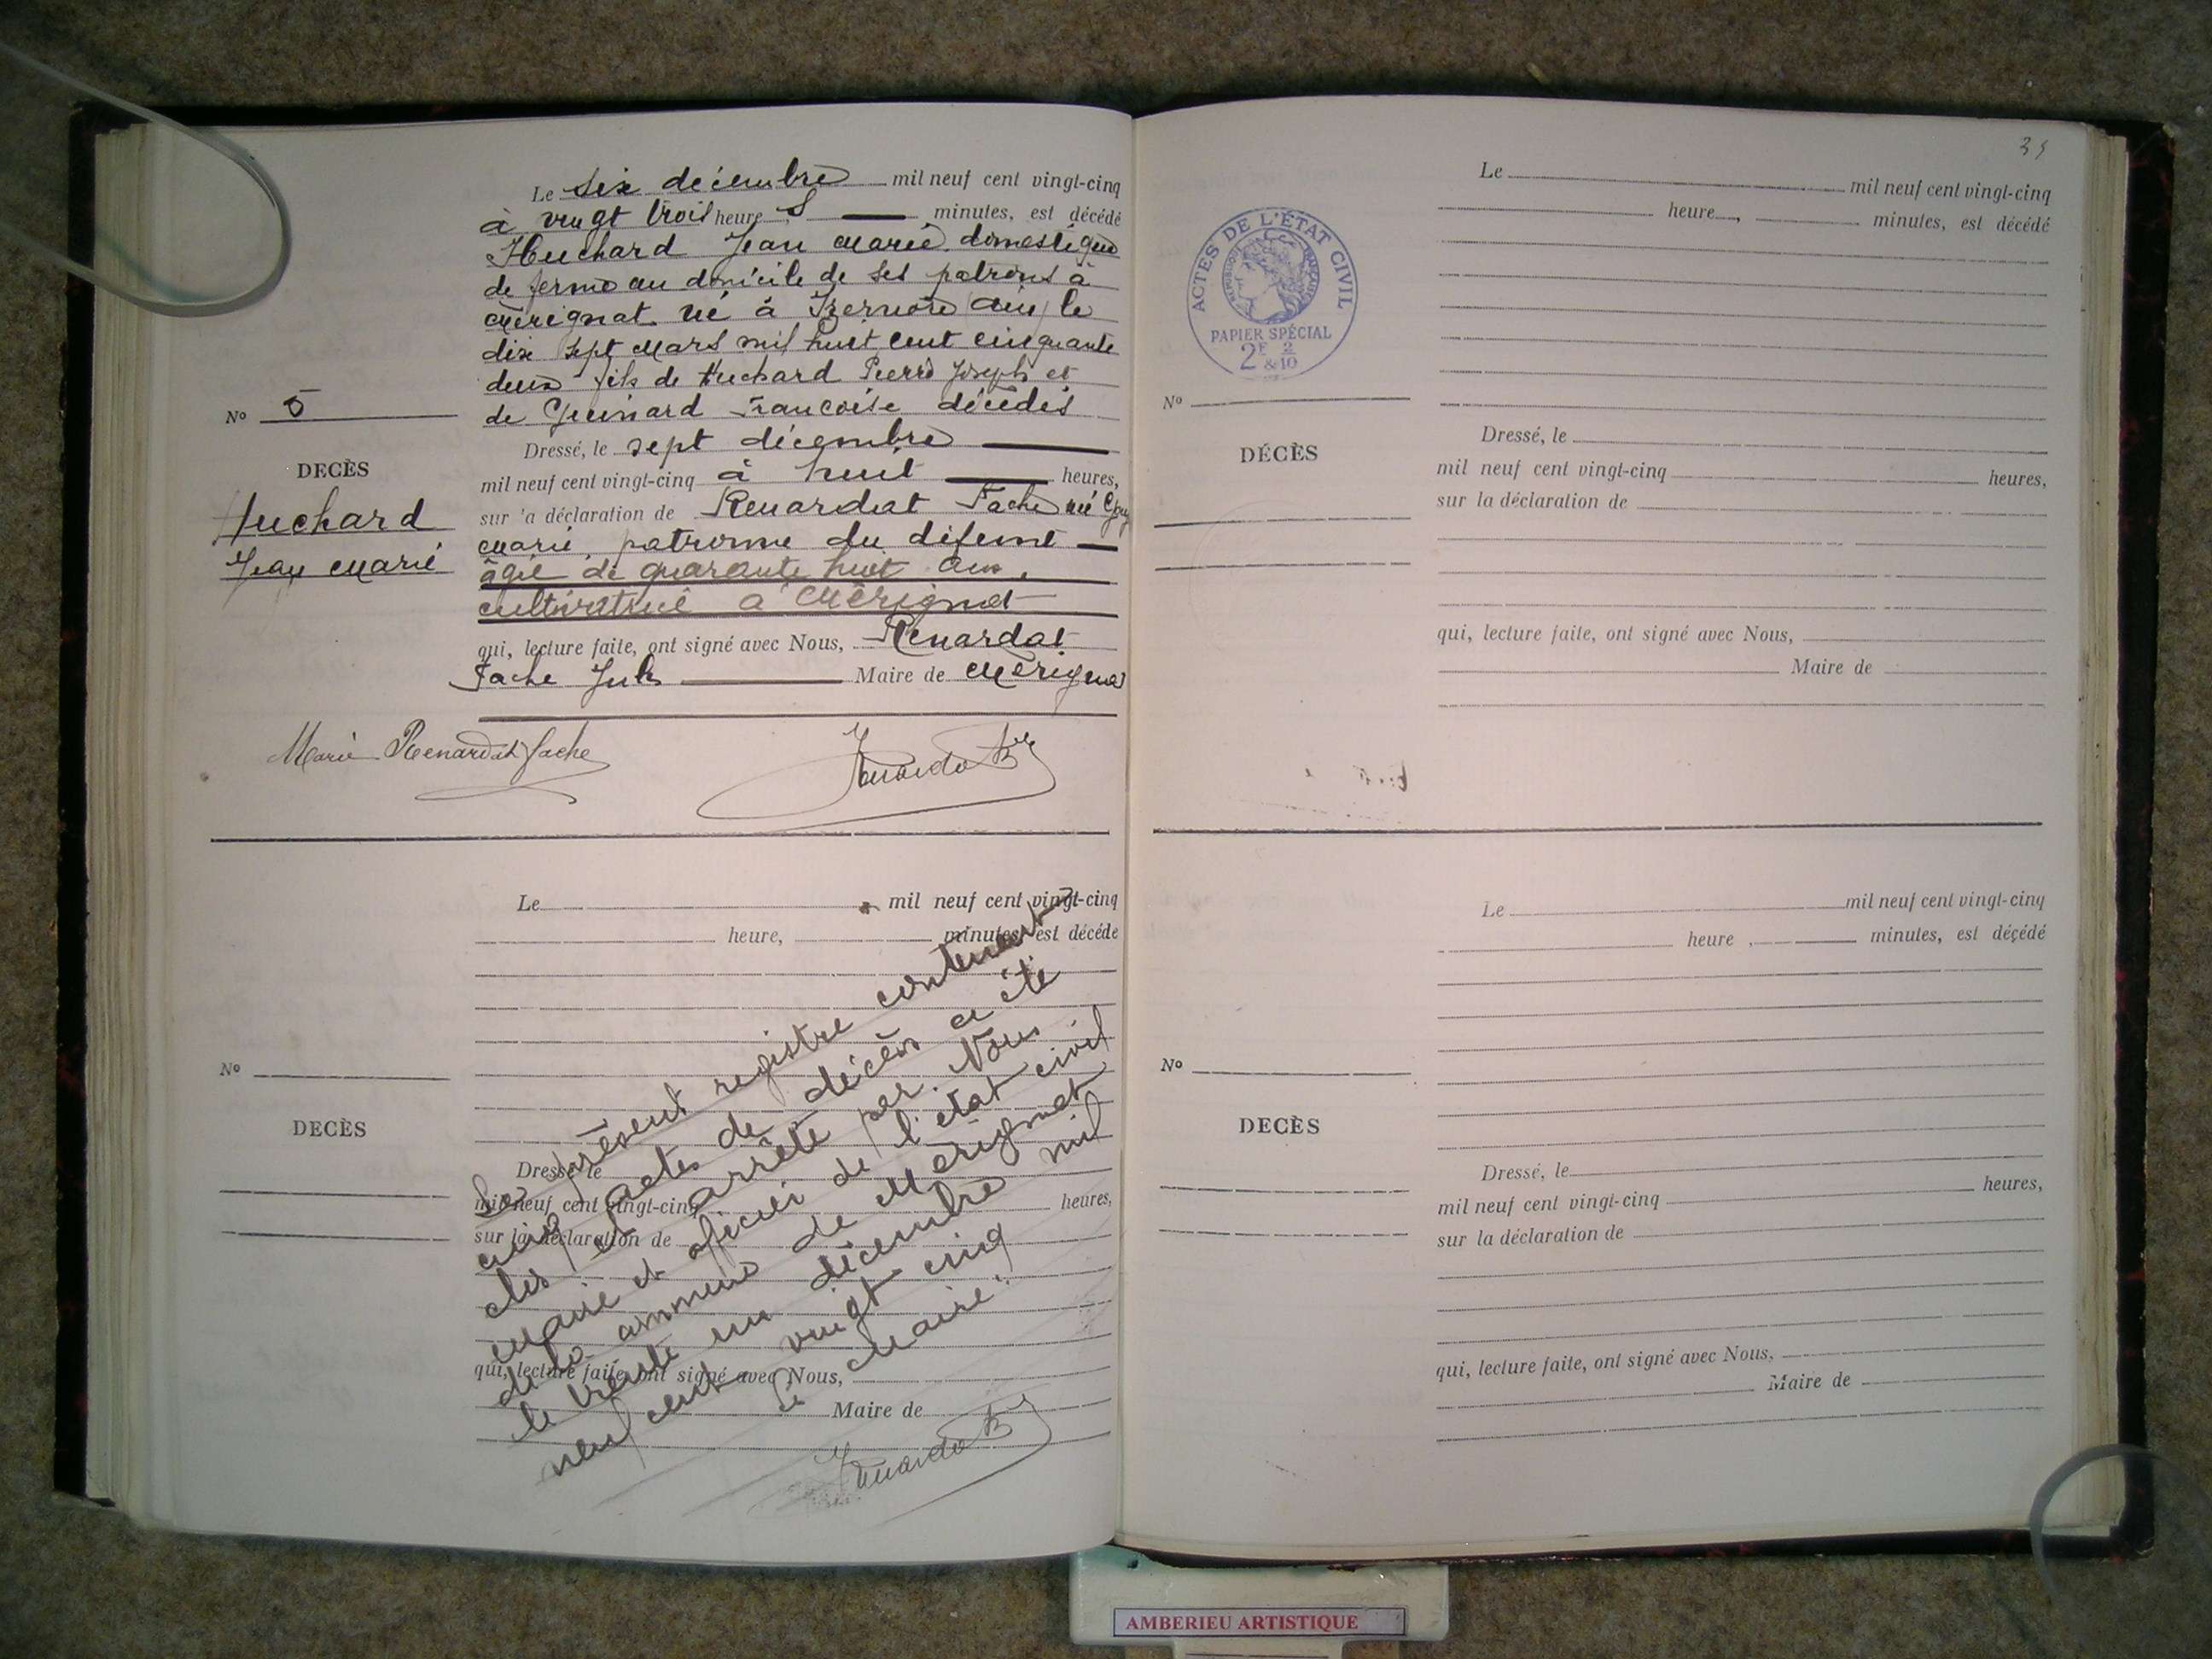 Le six décembre mil neuf cent vingt-cinq
à vingt trois heure s minutes, est décédé
Huchard Jean Marie domestique
de ferme au domicile de ses patrons à
Mérignat né à Izernore Ain le
dix sept Mars mil huit cent cinquante
deux fils de Huchard Pierre Joseph et
de Guinard Francoise décédés
Nº 5
Dressé, le sept décembre
DECÈS
mil neuf cent vingt-cinq à huit heures,
Huchard
Jean Marie
sur la déclaration de Renardat Fache né
Marie, patronne du défunt
âgée de quarante huit ans,
cultivatrice à Mérignat
qui, lecture faite, ont signé avec Nous, Renardat
Fache Jules Maire de Mérignat
Marie Renardat Fache
Le mil neuf cent vingt-cinq
heure, minutes, est décédé
Nº
DECÈS
Dressé, le
mil neuf cent vingt-cinq heures,
sur la déclaration de
qui, lecture faite, ont signé avec Nous,
Maire de
Le présent registre contenant
cinq actes de décès a été
clos et arrêté par Nous
Maire et oficier de l'état civil
de la commune de Mérignat
le trente un décembre mil
neuf cent vingt cinq
Le Maire:
Le mil neuf cent vingt-cinq
heure, minutes, est décédé
ACTES DE L'ÉTAT CIVIL
RÉPUBLIQUE FRANÇAISE
PAPIER SPÉCIAL
2F & 2/10
Nº
DÉCÈS
Dressé, le
mil neuf cent vingt-cinq heures,
sur la déclaration de
qui, lecture faite, ont signé avec Nous,
Maire de
Le mil neuf cent vingt-cinq
heure, minutes, est décédé
Nº
DECÈS
Dressé, le
mil neuf cent vingt-cinq heures,
sur la déclaration de
qui, lecture faite, ont signé avec Nous,
Maire de
AMBERIEU ARTISTIQUE